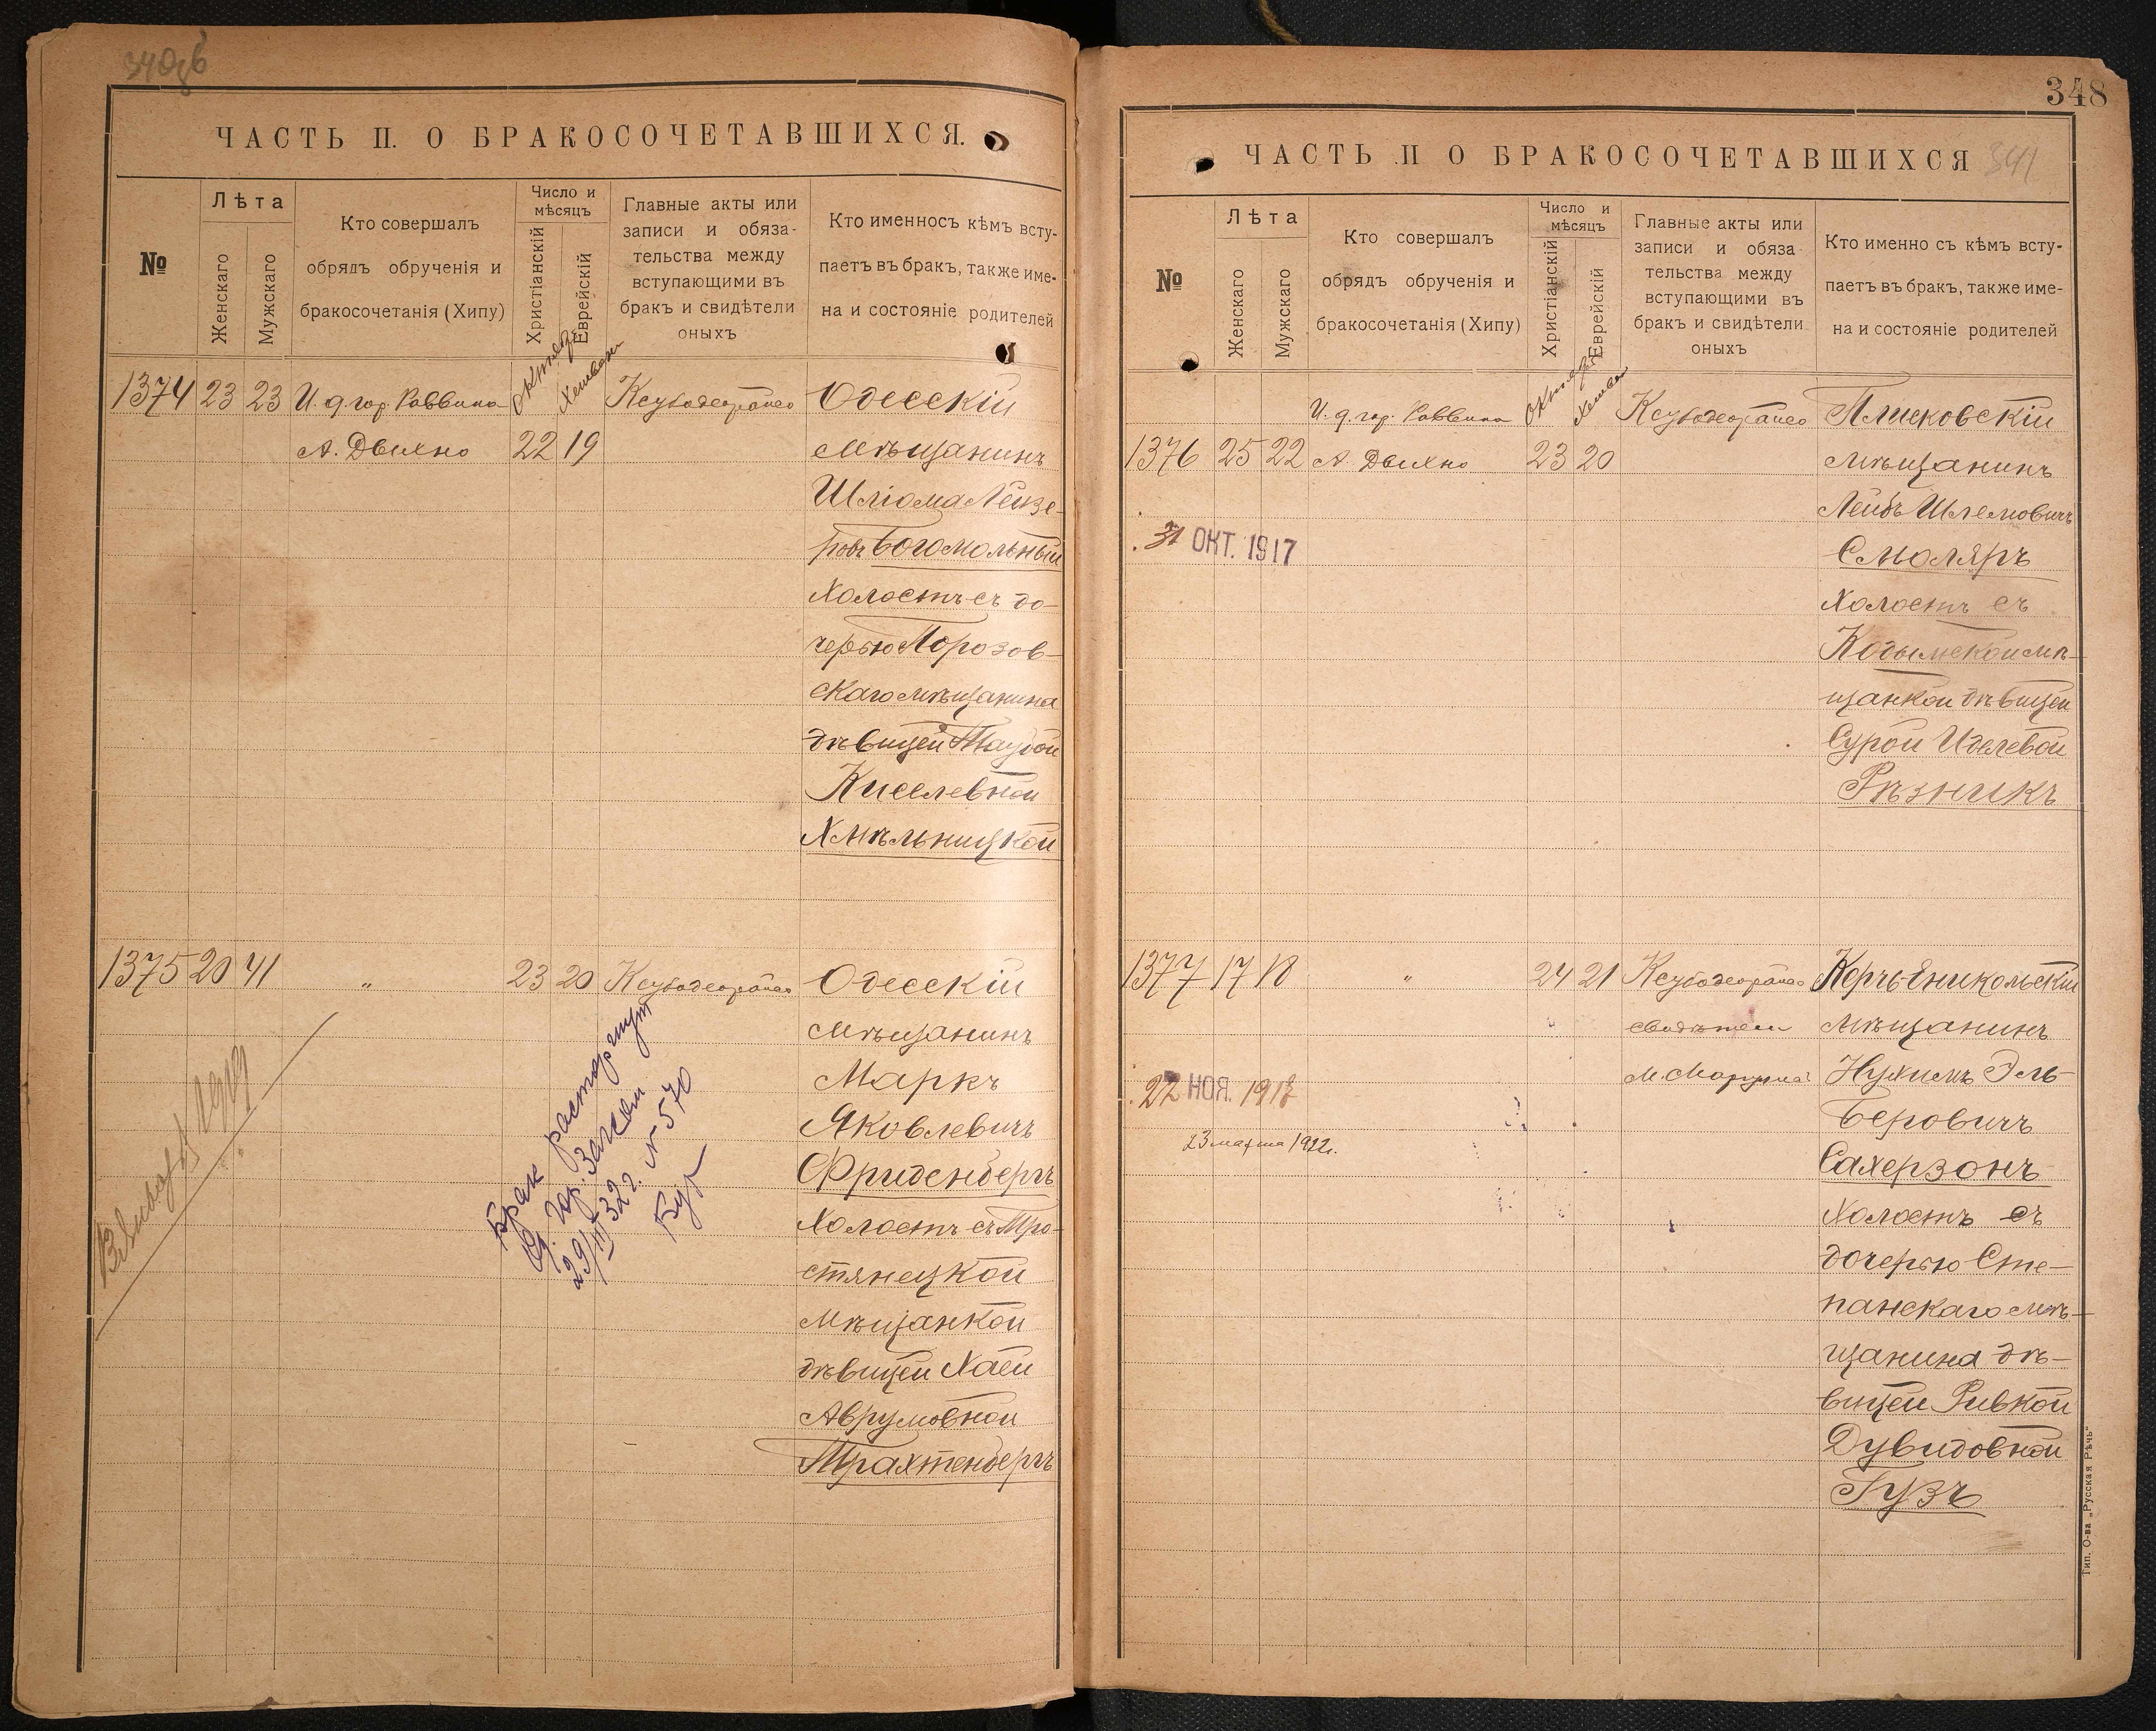 ЧАСТЬ II. О БРАКОСОЧЕТАВШИХСЯ.
№
Лѣта
Женскаго
Мужскаго
Кто совершалъ
обрядъ обрученія и
бракосочетанія (Хипу)
Число и
мѣсяцъ
Христіанскій
Еврейскій
Главные акты или
записи и обяза-
тельства между
вступающими въ
бракъ и свидѣтели
оныхъ
Кто именносъ кѣмъ всту-
паетъ въ бракъ, также име-
на и состояніе родителей
1374 23 23 И. д. гор. Раввина Октябрь Хешванъ Одесскій
А. Двихно 22 19 мѣщанинъ
Шліома Лейзе-
ровъ Богомольный
холостъ съ до-
черью Морозов-
скаго мѣщанина
дѣвицей Таубой
Киселевной
Хмѣльницкой
1375 20 41 " 23 20 Одесскій
мѣщанинъ
Маркъ
Яковлевичъ
Фриденбергъ
холостъ съ Тро-
стянецкой
мѣщанкой
дѣвицей Хаей
Аврумовной
Трахтенбергъ
Брак расторгнут
Загсом
29/III 32 г. № 570
348
ЧАСТЬ II О БРАКОСОЧЕТАВШИХСЯ
341
№
Лѣта
Женскаго
Мужскаго
Кто совершалъ
обрядъ обрученія и
бракосочетанія (Хипу)
Число и
мѣсяцъ
Христіанскій
Еврейскій
Главные акты или
записи и обяза
тельства между
вступающими въ
бракъ и свидѣтели
оныхъ
Кто именно съ кѣмъ всту-
паетъ въ бракъ, также име-
на и состояніе родителей
И. д. гор. Раввина Октябрь Хешван Плисковскій
1376 25 22 А. Двихно 23 20 мѣщанинъ
Лейбъ Шлемовичъ
Смоляръ
холостъ съ
Кодымской мѣ-
щанкой дѣвицей
Сурой Иделевой
Рѣзникъ
31 ОКТ. 1917
1377 17 18 " 24 21 Керчь-Еникольскій
свидѣтели мѣщанинъ
Нухимъ Эль-
Беровичъ
Сахерзонъ
холостъ съ
дочерью Сте-
панскаго мѣ-
щанина дѣ-
вицей Ривкой
Дувидовной
Гузъ
22 НОЯ.
23 марта 1922 г.
Тип. О-ва „Русская Рѣчь"